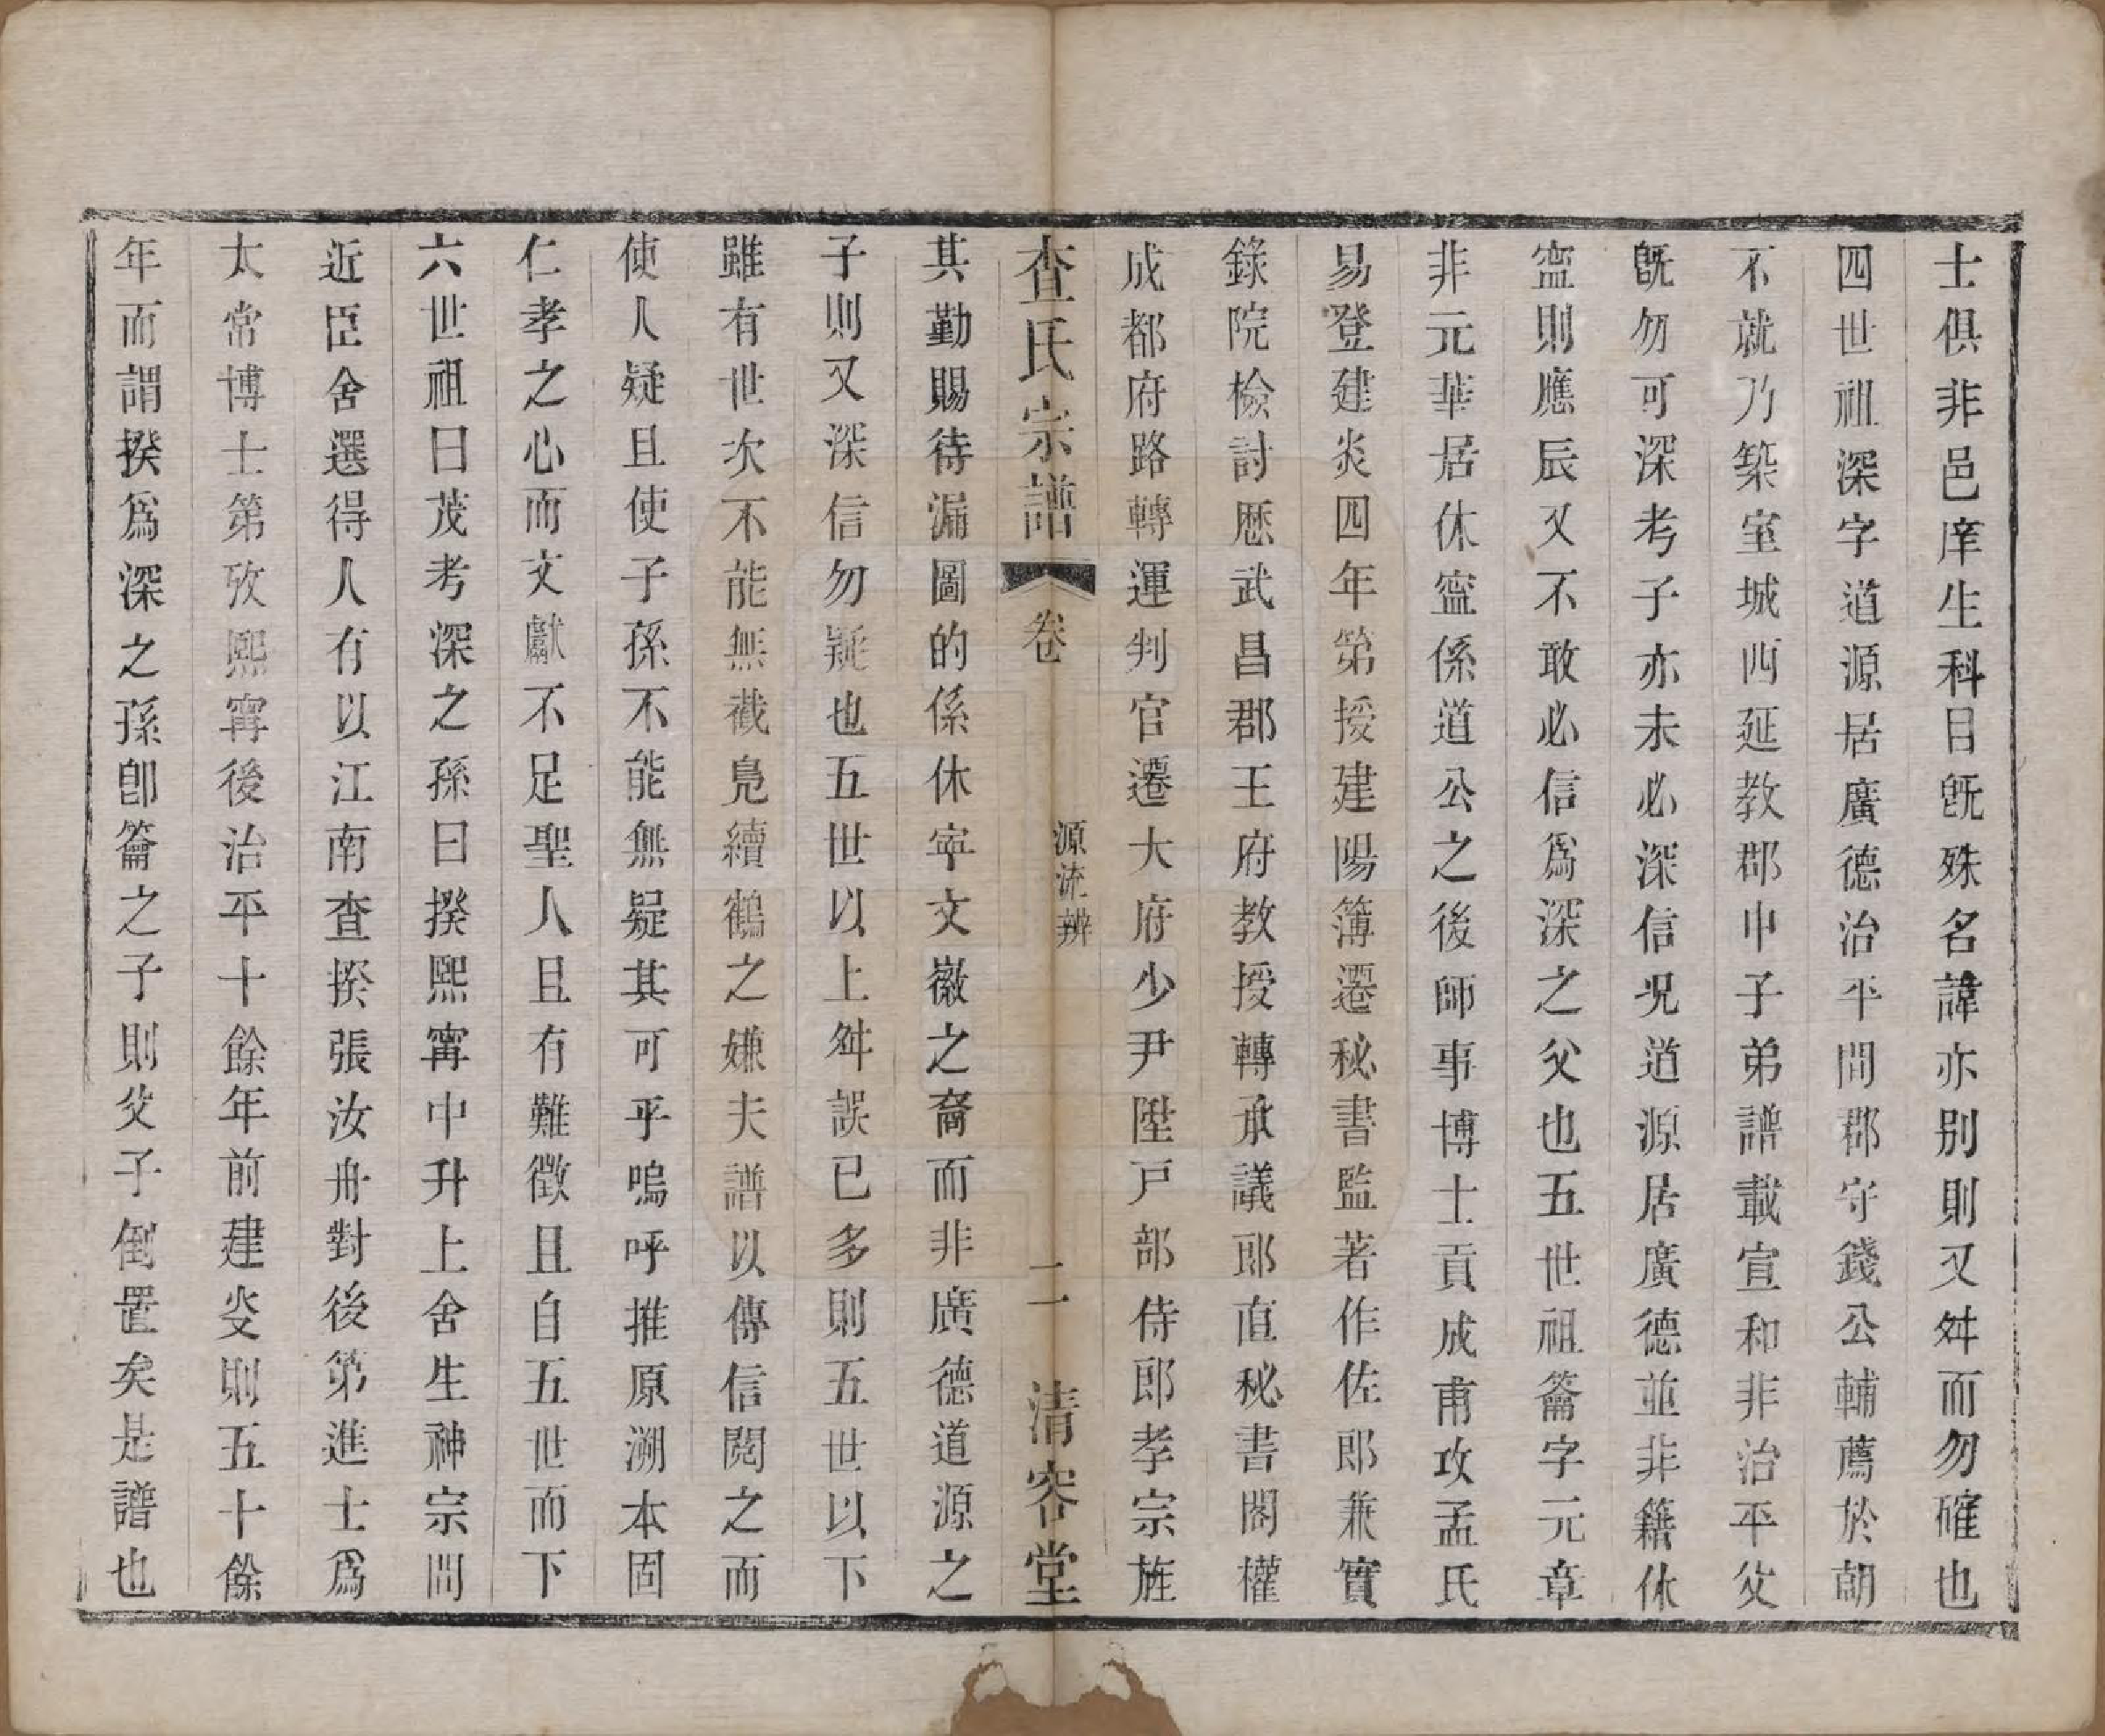 士俱非邑庠生科目旣殊名諱亦别則又舛而勿確也
四世祖深字道源居廣德治平間郡守錢公輔薦於朝
不就乃築室城西延教郡中子弟譜載宣和非治平父
旣勿可深考子亦未必深信况道源居廣德並非籍休
寍則應辰又不敢必信爲深之父也五世祖籥字元章
非元華居休寍係道公之後師事博士貢成甫攻孟氏
易登建炎四年第授建陽簿遷秘書監著作佐郎兼實
錄院檢討歷武昌郡王府教授轉承議郎直秘書閣權
成都府路轉運判官遷大府少尹陞戸部侍郎孝宗旌
查氏宗譜 卷 源流辨 二 清容堂
其勤賜待漏圖的係休寧文徽之裔而非廣德道源之
子則又深信勿疑也五世以上舛誤已多則五世以下
雖有世次不能無截鳬續鶴之嫌夫譜以傳信閱之而
使人疑且使子孫不能無疑其可乎嗚呼推原溯本固
仁孝之心而文獻不足聖人且有難徵且自五世而下
六世祖曰茂考深之孫曰揆熙寗中升上舍生神宗問
近臣舍選得人有以江南查揆張汝舟對後第進士爲
太常博士第攷熙寗後治平十餘年前建炎則五十餘
年而謂揆爲深之孫卽籥之子則父子倒置矣是譜也